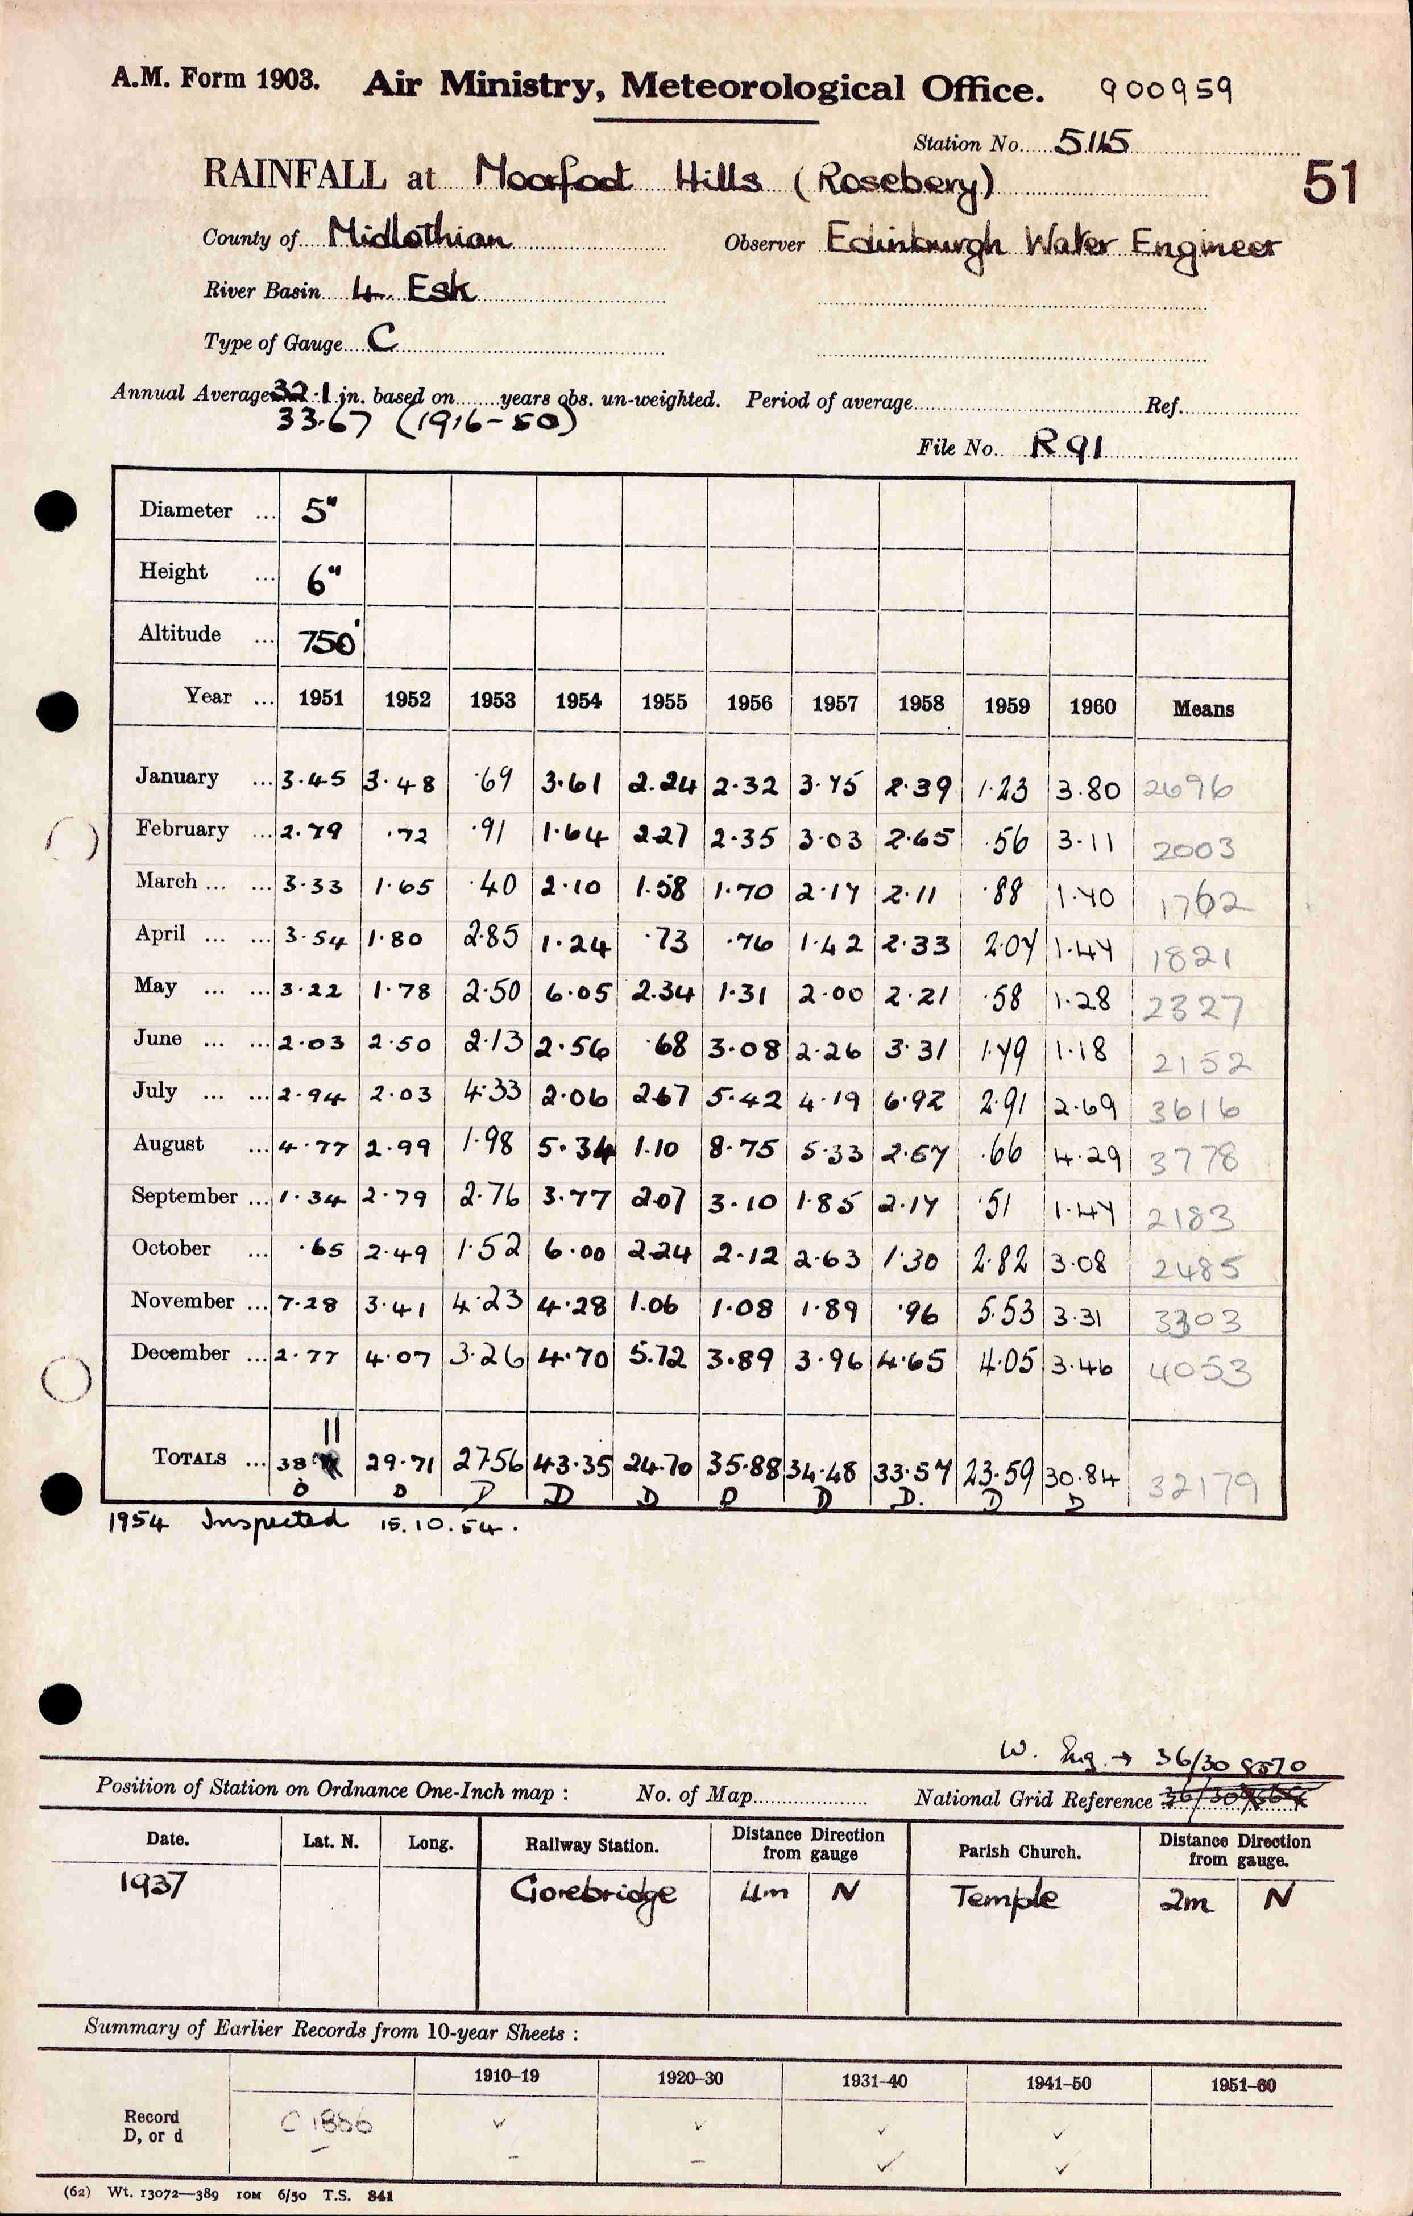 A.M. Form 1903. Air Ministry, Meteorological Office. 900959
Station No. 5115
RAINFALL at Moorfoot Hills (Rosebery) 51
County of Midlothian Observer Edinburgh Water Engineer
River Basin 4. Esk
Type of Gauge C
Annual Average 32.1 in. based on ...... years obs. un-weighted. Period of average Ref.
33.67 (1916-50)
File No. R91
Diameter ... 5"
Height ... 6"
Altitude ... 750'
Year ... 1951 1952 1953 1954 1955 1956 1957 1958 1959 1960 Means
January ... 3.45 3.48 .69 3.61 2.24 2.32 3.75 2.39 1.23 3.80 2696
February ... 2.79 .72 .91 1.64 2.27 2.35 3.03 2.65 .56 3.11 2003
March ... ... 3.33 1.65 .40 2.10 1.58 1.70 2.17 2.11 .88 1.70 1762
April ... ... 3.54 1.80 2.85 1.24 .73 .76 1.42 2.33 2.07 1.47 1821
May ... ... 3.22 1.78 2.50 6.05 2.34 1.31 2.00 2.21 .58 1.28 2327
June ... ... 2.03 2.50 2.13 2.56 .68 3.08 2.26 3.31 1.79 1.18 2152
July ... ... 2.94 2.03 4.33 2.06 2.67 5.42 4.19 6.92 2.91 2.69 3616
August ... 4.77 2.99 1.98 5.34 1.10 8.75 5.33 2.57 .66 4.29 3778
September ... 1.34 2.79 2.76 3.77 2.07 3.10 1.85 2.17 .51 1.47 2183
October ... .65 2.49 1.52 6.00 2.24 2.12 2.63 1.30 2.82 3.08 2485
November ... 7.28 3.41 4.23 4.28 1.06 1.08 1.89 .96 5.53 3.31 3303
December ... 2.77 4.07 3.26 4.70 5.72 3.89 3.96 4.65 4.05 3.46 4053
11
TOTALS ... 38. 29.71 27.56 43.35 24.70 35.88 34.48 33.57 23.59 30.84 32179
D D D D D D D D. D D
1954 Inspected 15.10.54.
W. Eng → 36/30 8570
Position of Station on Ordnance One-Inch map : No. of Map National Grid Reference
Date. Lat. N. Long. Railway Station. Distance Direction from gauge Parish Church. Distance Direction from gauge.
1937 Gorebridge 4m N Temple 2m N
Summary of Earlier Records from 10-year Sheets :
1910–19 1920–30 1931–40 1941–50 1951–60
Record C 1886 ✓ ✓ ✓ ✓
D, or d – – – ✓ ✓
(62) Wt. 13072—389 10M 6/50 T.S. 841